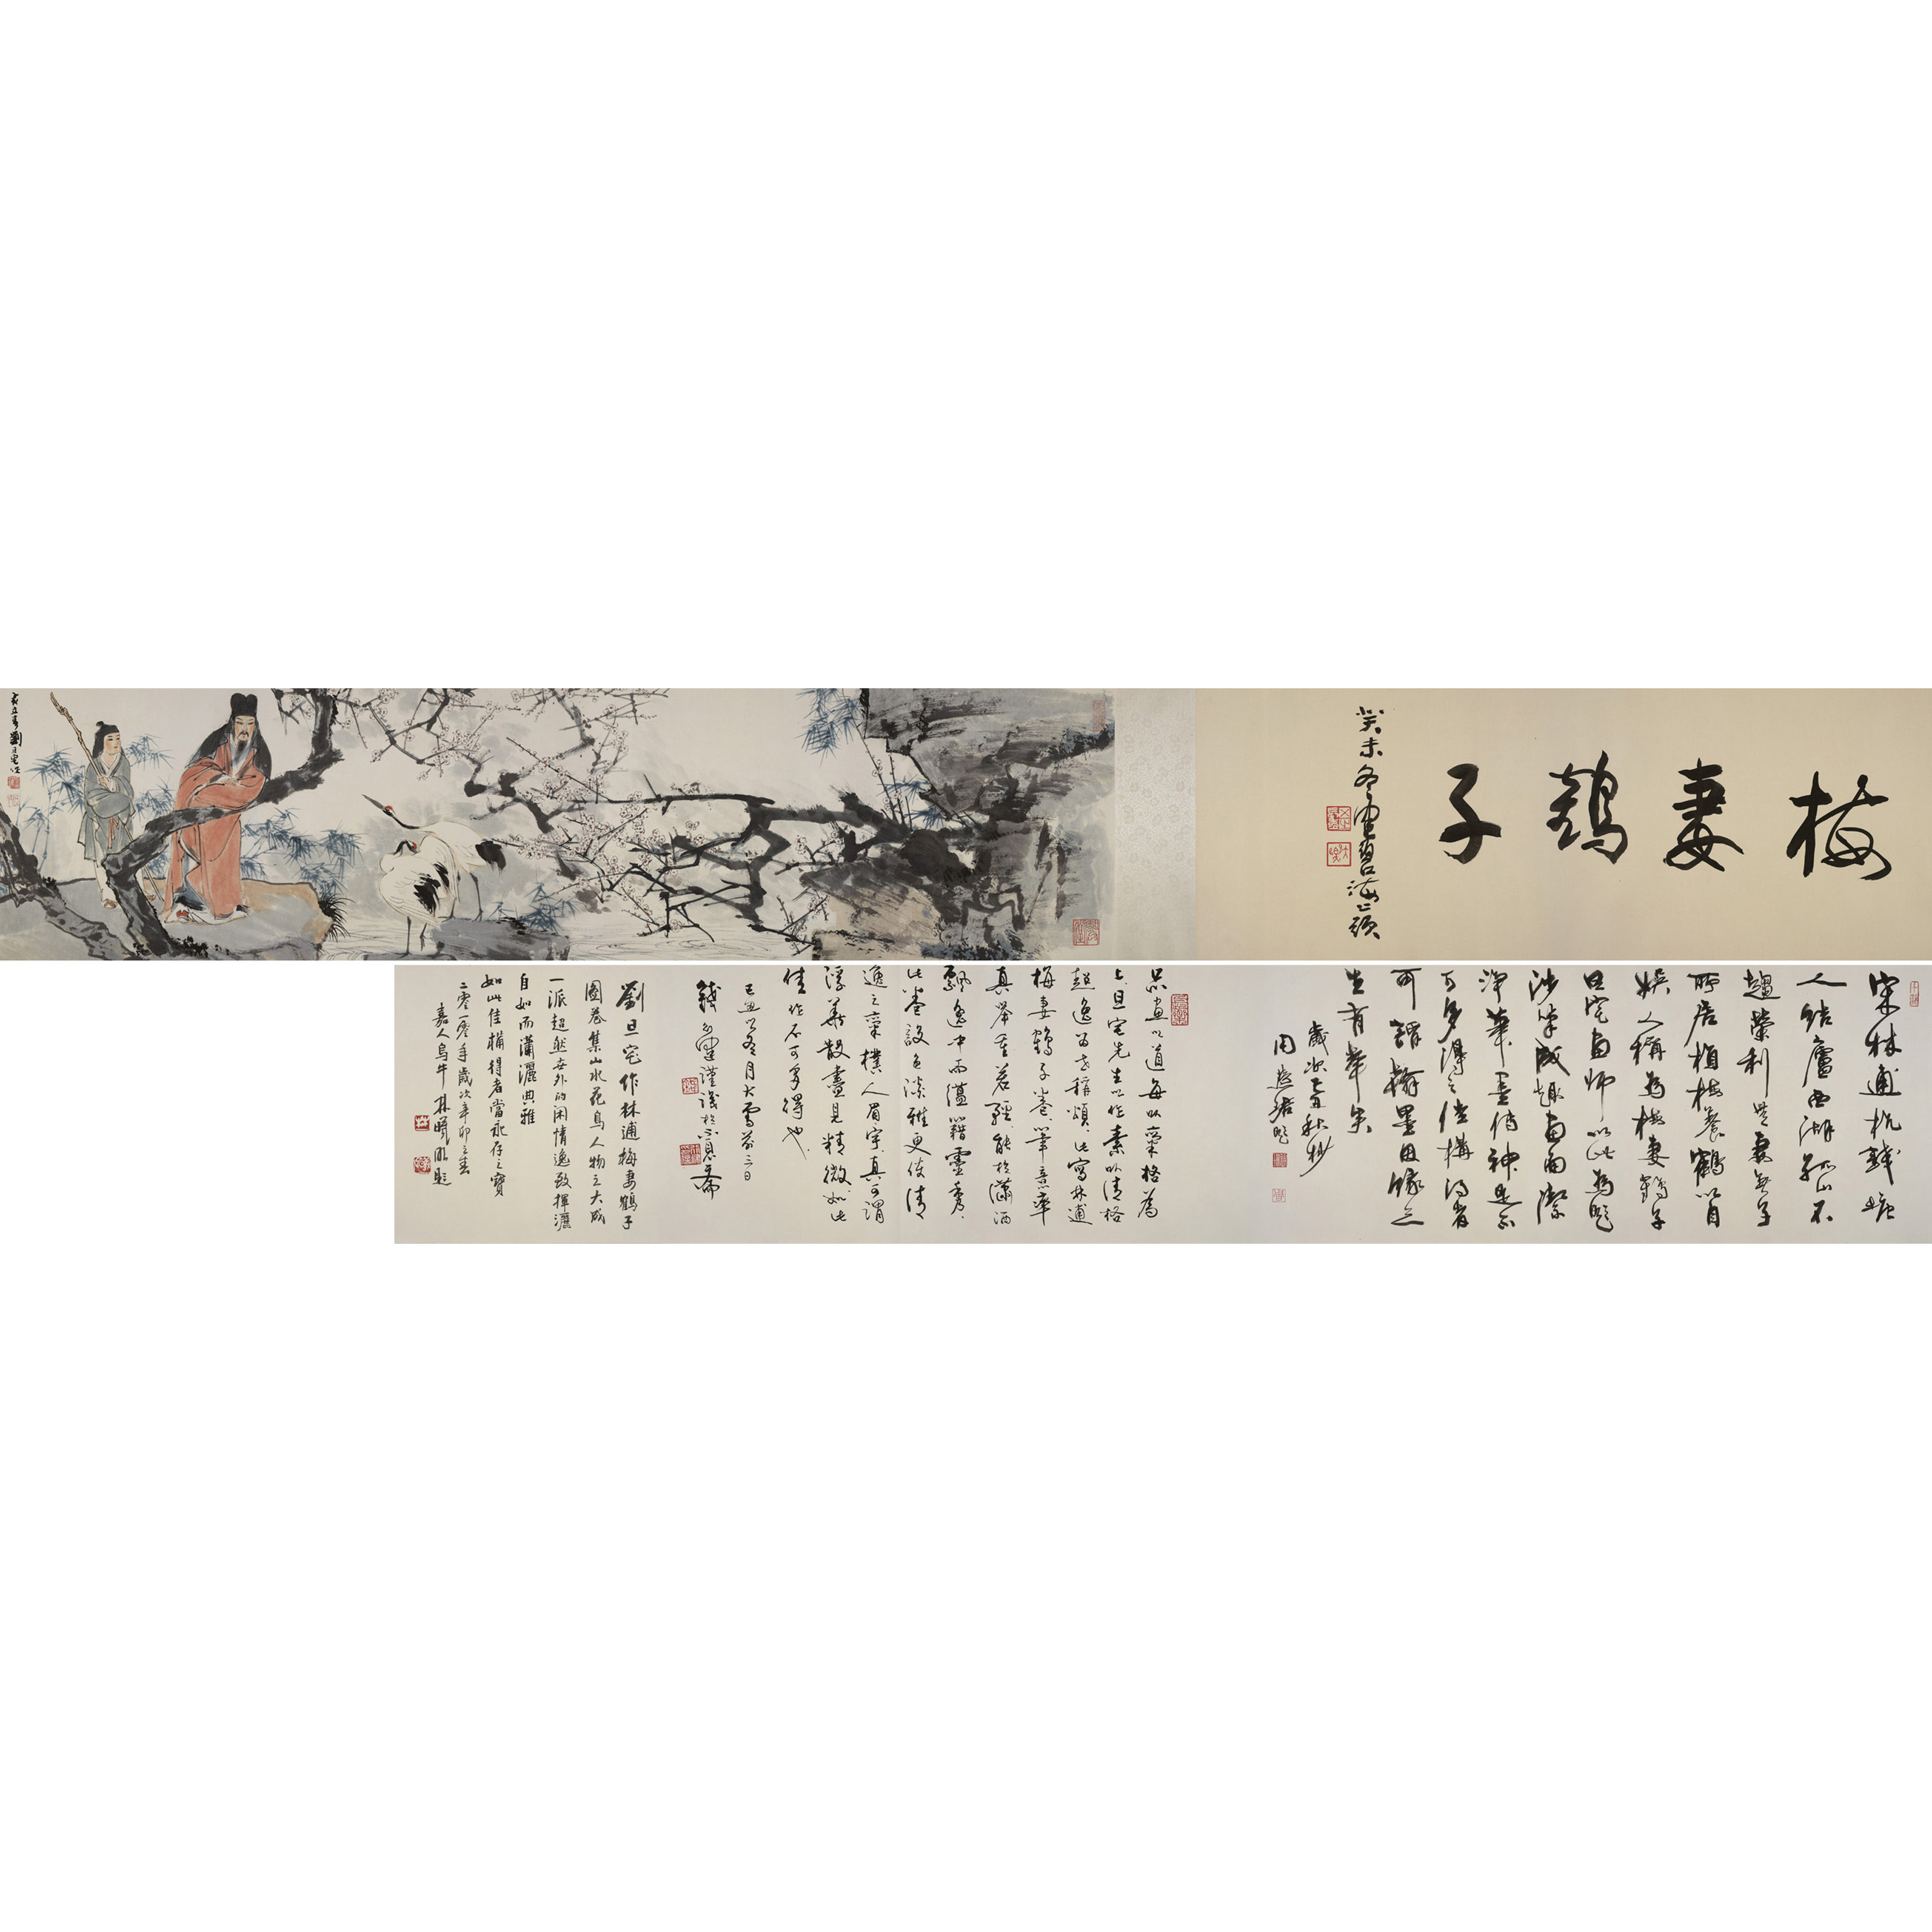 梅妻鶴子
癸未冬
劉旦宅
宋林逋杭錢塘
人結廬西湖孤山不
趨榮利無妻無子
所居植梅養鶴以自
娛人稱為梅妻鶴子
旦宅畫師以此為題
涉筆成趣畫面潔
淨筆墨傳神是不
可多得之佳構得者
可謂翰墨因緣三
生有幸矣
歲次秋杪
品畫之道每以稟格為
上旦宅先生以作素以清格
超逸為世稱頌此寫林逋
梅妻鶴子卷筆意率
真舉重若輕能於瀟洒
飄逸中而蘊籍靈秀
此卷設色淡雅更使清
逸之稟撲人眉宇真可謂
浮華散盡見精微如此
佳作不可多得也
己丑之冬月大雪前二日
錢謹識於息齋
劉旦宅作林逋梅妻鶴子
圖卷集山水花鳥人物之大成
一派超然世外的闲情逸致揮灑
自如而瀟灑典雅
如此佳構得者當永存之寶
二零一零年歲次辛卯之春
嘉人烏牛林曦明題